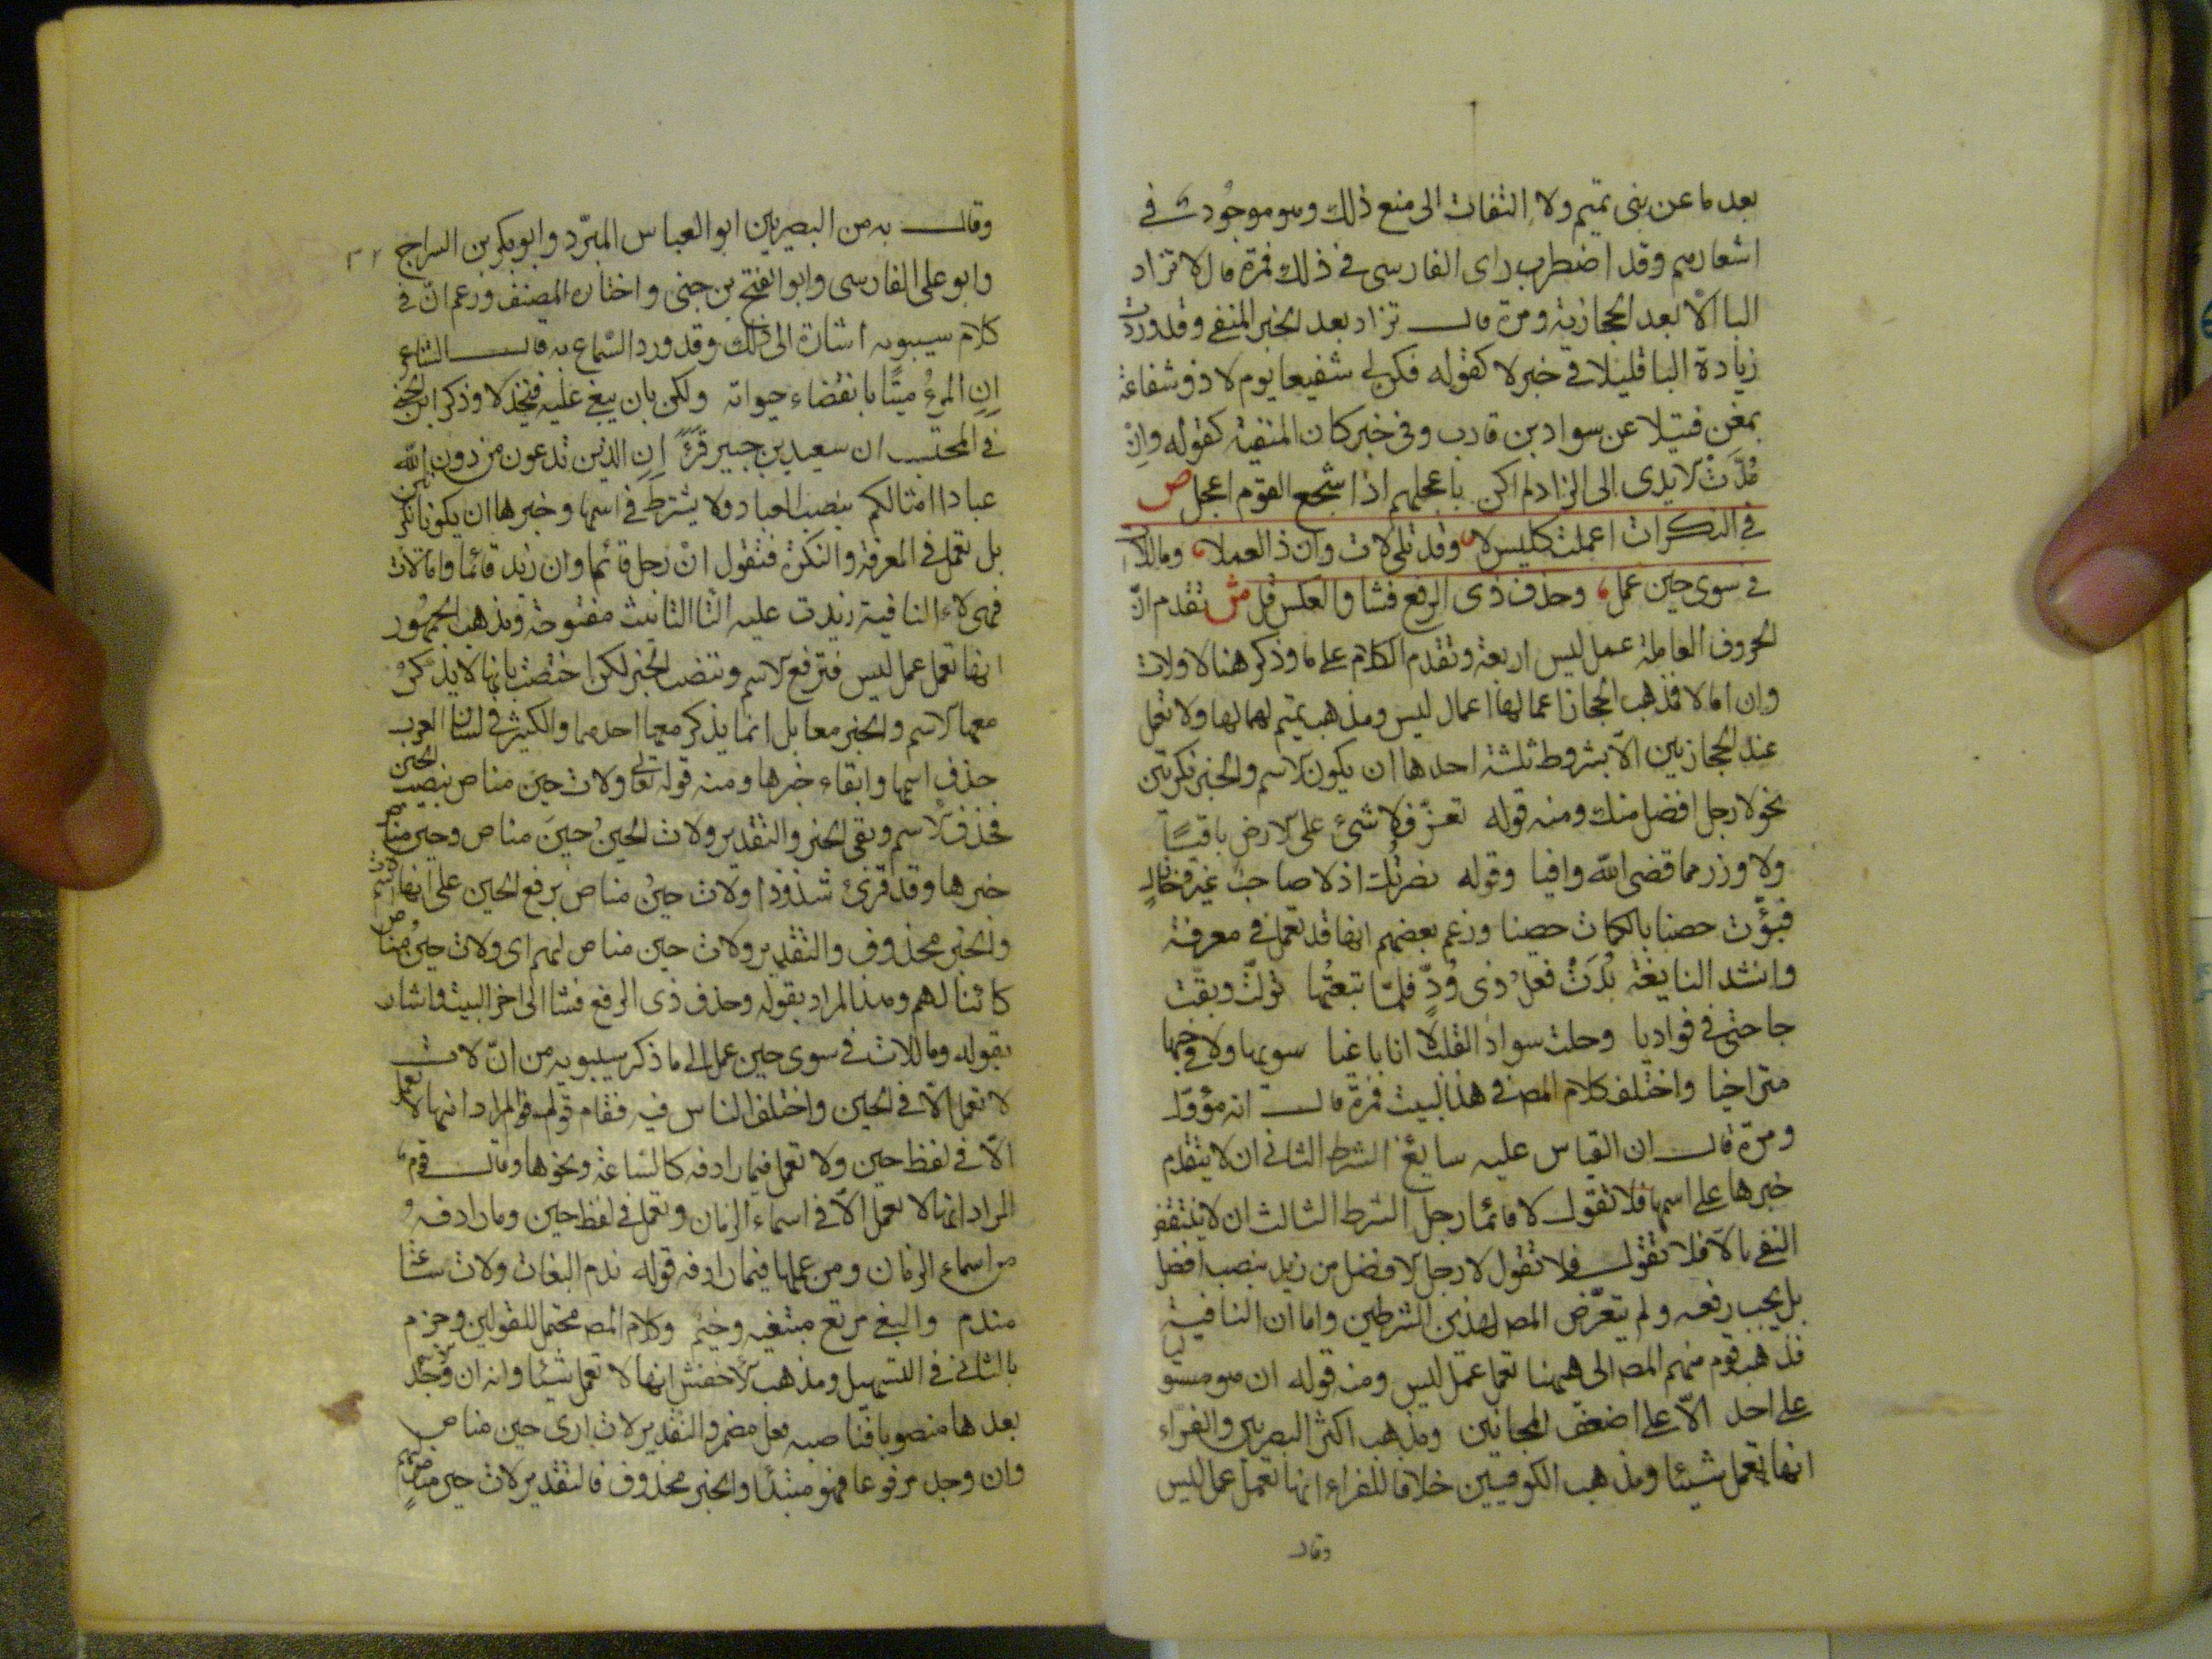 بعد ما عن بنى تميم ولا التفات الى منع ذلك وهو موجود فى
اشعارهم وقد اضطرب راى الفارسى فى ذلك فمرة قال لا تزاد
البا الّا بعد الحجازية ومرة قال تزاد بعد الخبر المنفى وقد وردت
زيادة البا قليلا فى خبر لا كقوله فكن لى شفيعا يوم لا ذو شفاعة
بمغن فتيلا عن سواد بن قارب وفى خبر كان المنفية كقوله وانْ
مُدّتْ الايدى الى الزاد لم اكن باعجلهم اذا شجع القوم اعجل ص
فى النكرات اعملت كليس لا، وقد تلى لات وان ذا العملا، وما للات
فى سوى حين عمل، وحذف ذى الرفع فشا والعكس قل ش تقدم انّ
الحروف العاملة عمل ليس اربعة وتقدم الكلام على ما وذكر هنا لا ولات
وان اما لا فمذهب الحجاز اعمالها اعمال ليس ومذهب تميم اهمالها ولا تعمل
عند الحجازيين الّا بشروط ثلثة احدها ان يكون الاسم والخبر نكرتين
نحو لا رجل افضل منك ومنه قوله تعزّ فلا شئ على الارض باقيًا
ولا وزر مما قضى الله واقيا وقوله نصرتك اذ لا صاحب غير خاذل
فبوّئت حصنا بالكماة حصنا وزعم بعضهم انها قد تعمل فى معرفة
وانشد النابغة بُدَتْ فعلَ ذى وُدٍّ فلمّا تبعتُها تولّت وبقّت
حاجتى فى فواديا وحلت سواد القلب لا انا باغيا سويها ولا فى حبها
متراخيا واختلف كلام المص فى هذا البيت فمرة قال انه مؤوّل
ومرّة قال ان القياس عليه سايغ الشرط الثانى ان لا يتقدم
خبرها على اسمها فلا تقول لا قائما رجل الشرط الثالث ان لا ينتقض
النفى بالّا فلا تقول فلا تقول لا رجل الا افضل من زيد بنصب افضل
بل يجب رفعه ولم يتعرّض المص لهذين الشرطين واما ان النافية
فذهب قوم منهم المص الى هيهنا تعمل عمل ليس ومنه قوله ان هو مستوليا
على احد الّا على اضعف المجانين ومذهب اكثر البصريين والفراء
انها تعمل شيئا ومذهب الكوفيين خلافا للفراء انها تعمل عمل ليس
وقال
وقال به من البصريين ابو العباس المبرّد وابو بكر بن السراج
وابو على الفارسى وابو الفتح بن جنى واختاره المصنف وزعم انّ فى
كلام سيبويه اشارة الى ذلك وقد ورد السماع به قال الشاعر
اِنِ المرءُ ميتًا بانقضاء حيواته ولكن بان يبغى عليه فيخذلا وذكر ابن الجنى
فى المحتسب ان سعيد بن جبير قرء اِنِ الذين تدعون من دون الله
عبادا امثالكم بنصب العباد ولا يشترط فى اسمها وخبرها ان يكونا نكرتين
بل تعمل فى المعرفة والنكرة فتقول انْ رجل قائما وان زيد قائما واما لات
فهى لاء النافية زيدت عليه التا التانيث مفتوحة ومذهب الجمهور
انها تعمل عمل ليس فترفع الاسم وتنصب الخبر لكن اختصت بانها لا يذكر
معها الاسم والخبر معا بل انما يذكر معها احدهما والكثير فى لسان العرب
حذف اسمها وابقاء خبرها ومنه قوله تعالى ولات حين مناص بنصب الحين
فحذف الاسم وبقى الخبر والتقدير ولات الحينُ حينَ مناص وحين مناص
خبرها وقد قرئ شذوذا ولات حينُ مناص برفع الحين على انها اسم لات
والخبر محذوف والتقدير ولات حين مناص لهم اى ولات حينُ مناص
كائنا لهم وهذا المراد بقوله وحذف ذى الرفع فشا الى اخر البيت واشار
بقوله وما للات فى سوى حين عمل الى ما ذكر سيبويه من انّ لات
لا تعمل الّا فى الحين واختلف الناس فيه فقام قوله فى المراد انها لا تعمل
الّا فى لفظ حين ولا تعمل فيما رادفه كالساعة ونحوها وقال قوم
المراد انها لا تعمل الّا فى اسماء الزمان وتعمل فى لفظ حين وما رادفه
من اسماع الزمان ومن عملها فيما رادفه قوله ندم البغات ولات ساعة
مندم والبغى مرتع مبتغيه وخيم وكلام المص محتمل للقولين وجزم
بالثانى فى التسهيل ومذهب الاخفش انها لا تعمل شيئا وانه ان وُجد الاسم
بعدها منصوبا فناصبه فعل مضمر والتقدير لات ارى حين مناص
وان وجد مرفوعا فهو مبتدأ والخبر محذوف فالتقدير لات حين مناص لهم